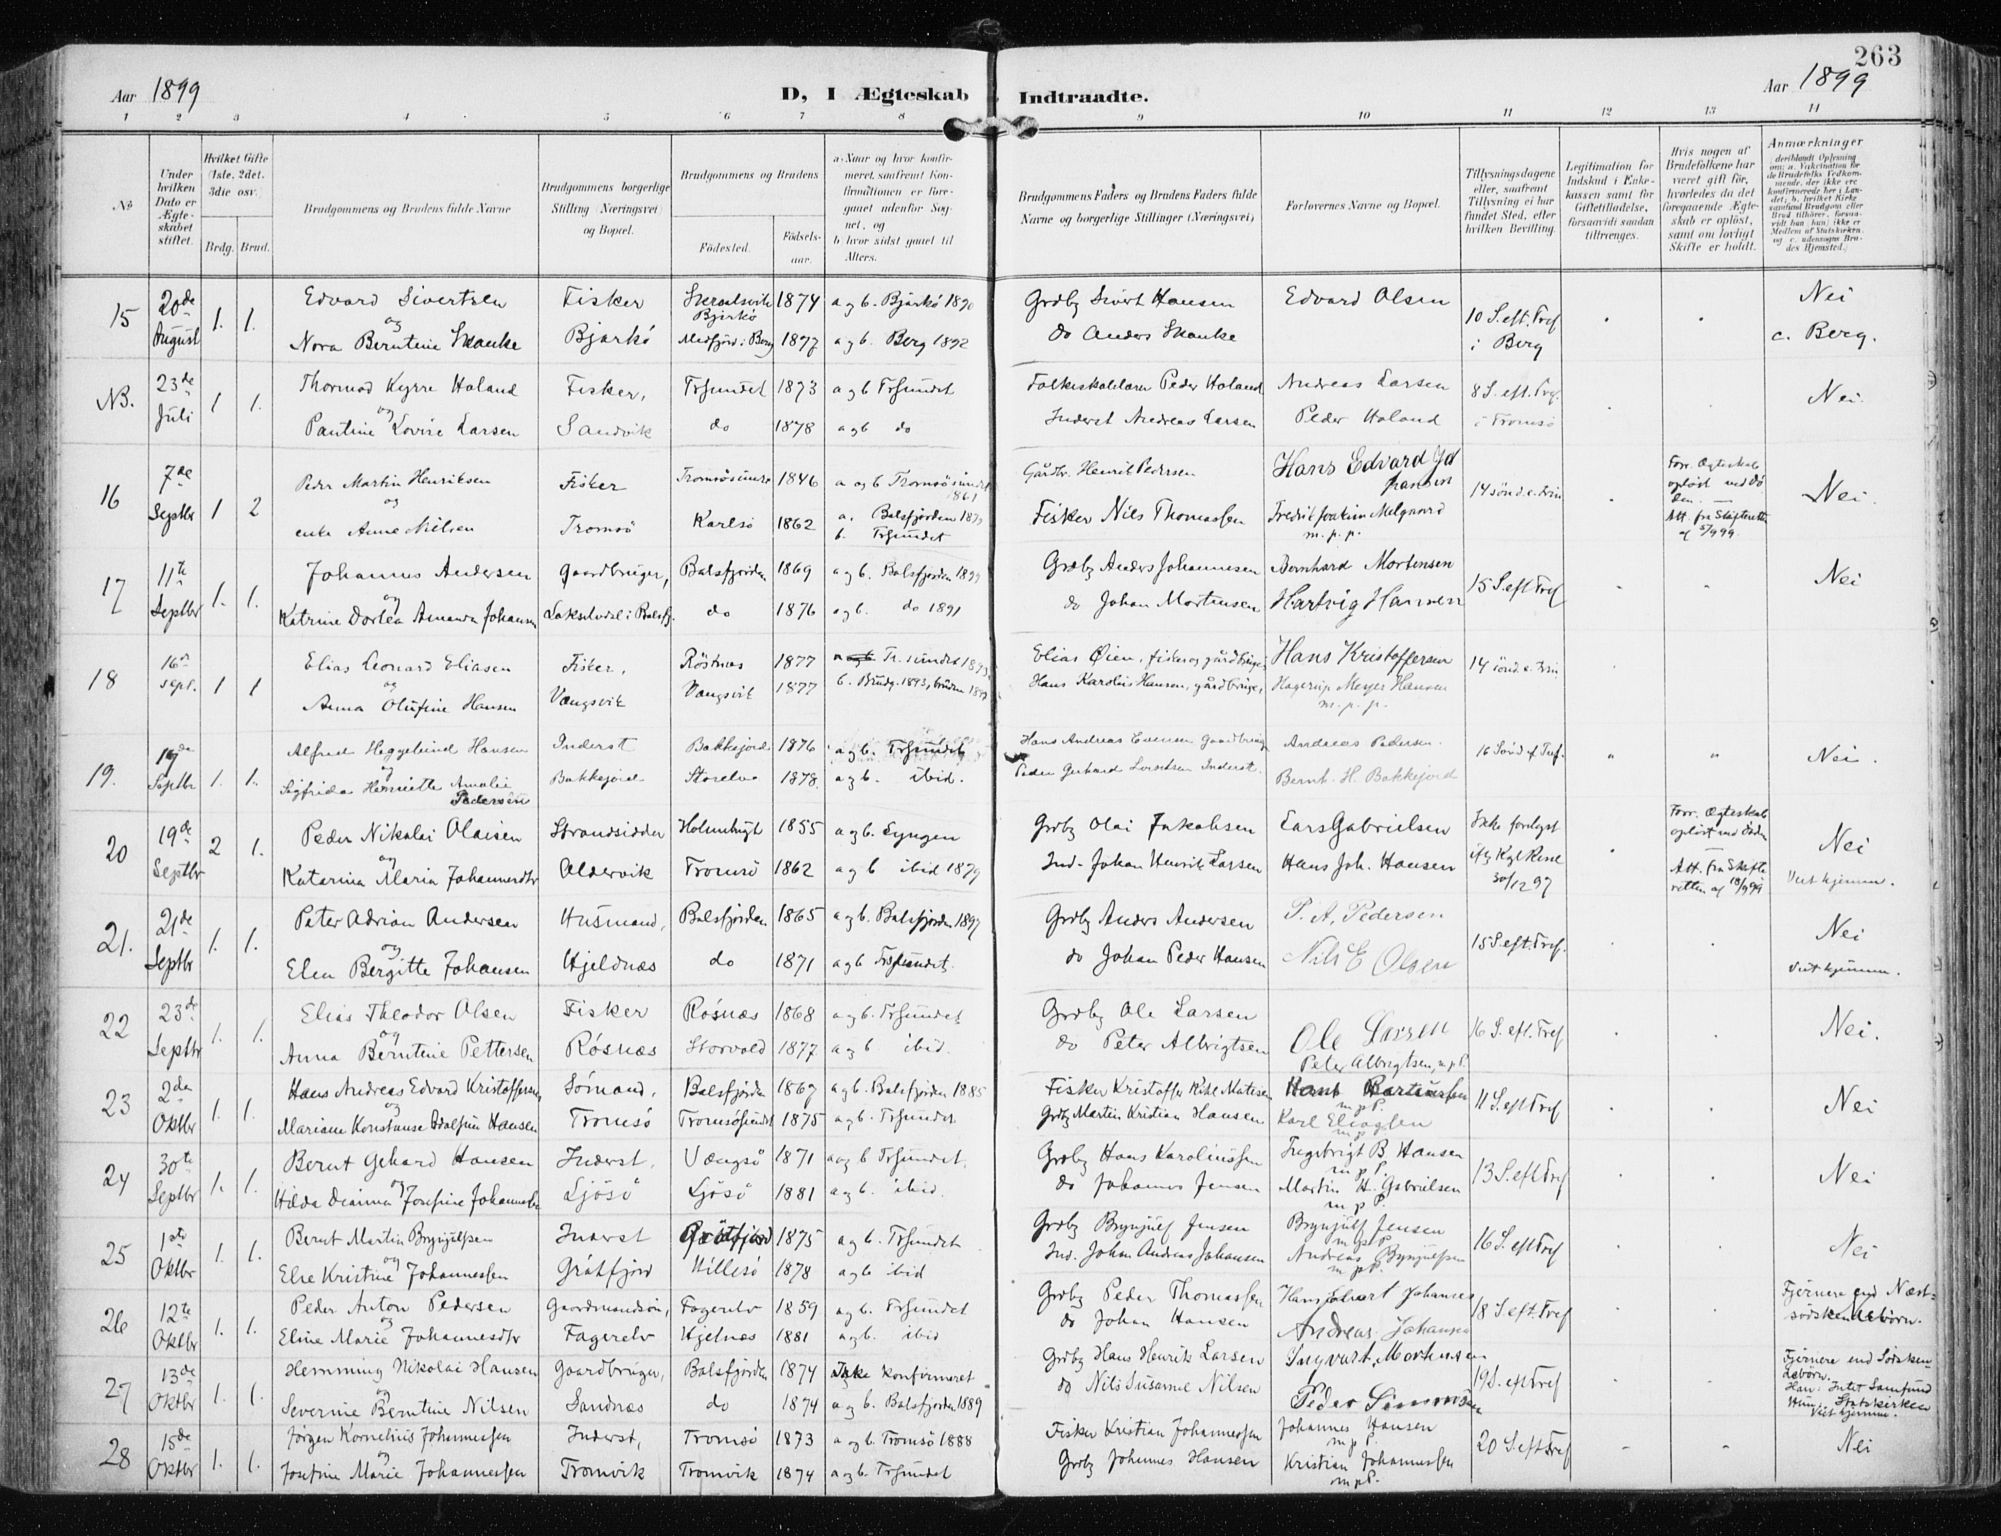 263
Aar 1899
D, I Ægteskab Indtraadte.
Aar 1899
1 2 3 4 5 6 7 8 9 10 11 12 13 14
No
Under hvilken Dato er Ægteskabet stiftet.
Hvilket Gifte (1ste, 2det, 3die osv.
Brdg. Brud.
Brudgommens og Brudens fulde Navne
Brudgommens borgerlige Stilling (Næringsvei) og Bopæl.
Brudgommens og Brudens
Fødested.
Fødselsaar.
a. Naar og hvor konfirmeret, saafremt Konfirmationen er foregaaet udenfor Sognet, og
b. hvor sidst gaaet til Alters.
Brudgommens Faders og Brudens Faders fulde Navne og borgerlige Stillinger (Næringsvei)
Forlovernes Navne og Bopæl.
Tillysningsdagene eller, saafremt Tillysning ei har fundet Sted, efter hvilken Bevilling.
Legitimation for Indskud i Enkekassen samt for Giftetilladelse, forsaavidt saadan tiltrænges.
Hvis nogen af Brudefolkene har været gift før, hvorledes da det foregaaende Ægteskab er opløst, samt om lovligt Skifte er holdt.
Anmærkninger
15 20de August 1. 1. Edvard Sivertsen og Nora Berntine Skanke Fisker Bjarkö Bjarkö 1874 Medfjord i Berg 1877 a og b. Bjarkö 1890 a og b. Berg 1892 Grdbg Sivert Hansen do Anders Skanke Edvard Olsen 10 S. eft. Tref i Berg Nei c. Berg.
NB. 23de Juli 1 1. Thormod Kyrre Holand og Pauline Lovise Larsen Fisker, Sandvik Trsundet 1873 do 1878 a og b Trsundet a og b do Peder Holand Inderst Andreas Larsen Andreas Larsen Peder Holand 8 S. eft. Tref. i Tromsö Nei.
16 7de Septbr 1 2 Peder Martin Henriksen og enke Anne Nilsen Fisker Tromsö 1846 Karlsö 1862 a og b Tromsösundet 1861 a. Balsfjorden b. Trsundet Gårdbr. Henrik Pedersen Fisker Nils Thomassen Hans Edvard Johansen Fredrik Joakim Melgaard m. p. p. 14 sønd. e. trin Forr. Ægteskab opløst ved Döden. Att. fra Skifteretten af 5/9 99. Nei.
17 11te Septbr 1. 1. Johannes Andersen og Katrine Dortea Amanda Johansen Gaardbruger, Balsfjorden 1869 do 1876 a og b. Balsfjorden a og b. do 1891 Grdbg Anders Johannesen do Johan Mortensen Bernhard Mortensen Hartvig Hansen 15 S. eft Tref Nei
18 16de sept. 1 1 Elias Leonard Eliasen og Anna Olufine Hansen Fisker, Vængsvik Röstnæs 1877 Vangsvik 1877 Tr. sundet b. Brudg. 1893, bruden Elias Øien, fisker og gårdbruger Hans Karolius Hansen, gårdbruger, Hans Kristoffersen Hagerup Meyer Hansen m. p. p. 14 sönd. e. trin
19. Septbr 1. 1. Alfred Heggelund Hansen og Sigfrida Henriette Amalie Pedersen Inderst Bakkejord Bakkejord 1876 Storelv 1878 a og b. Trsundet a og b. ibid. Hans Andreas Evensen Gaardbruger Peder Gerhard Inderst. Andreas Pedersen. Bernt. H. Bakkejord 16 Sönd. ef Tref. Nei.
20 19de Septbr 2 1. Peder Nikolai Olaisen og Katarina Maria Johannesdtr Strandsidder Oldervik 1855 Tromsö 1862 a og b. Lyngen a og b ibid 1879 Grdbg Olai Jakobsen Ind. Johan Henrik Larsen Lars Gabrielsen Hans Joh. Hansen Ikke forlyst iflg Kgl Res 30/12 97 Forr. Ægteskab opløst ved Döden Att. fra Skifteretten af 18/9 99 Nei Veit hjemm.
21. 21de Septbr 1. 1. Peter Adrian Andersen og Elen Bergitte Johansen Husmand, Hjeldnæs Balsfjorden 1865 do 1871 a og b. Balsfjorden 1897 a og b Trsundet. Grdbg Anders Andersen do Johan Peder Hansen P. A. Pedersen Nils E Olsen 15 S. eft. Tref. Nei
22 23de Septbr 1. 1. Elias Theodor Olsen og Anna Berntine Pettersen Fisker Rösnæs Rösnæs 1868 Storvold 1877 a og b. Trsundet a og b ibid. Grdbg Ole Larsen do Peter Albrigtsen Ole Larsen Peter Albrigtsen, m. p. P. 16 S. eft. Tref Nei.
23 2den Oktbr 1. 1. Hans Andreas Edvard Kristoffersen og Mariane Konstanse Adolfine Hansen Sömand, Tromsö Balsfjorden 1867 Tromsösundet 1875 a og b. Balsfjorden 1885 a og b. Trsundet. Fisker Kristoffer Mathisen Grdbg Martin Kristian Hansen m p P. Karl Eliassen m p P 11 S. eft Tref Nei
24 30te Septbr 1. 1. Bernt Gehard Hansen og Hilda Deanna Josefine Johannesen Inderst, Ljösö Vængsö 1871 Ljösö 1881 a og b Trsundet. a og b. ibid. Grdbg Hans Karoliussen do Johannes Jensen Ingebrigt B. Hansen m p P. Martin H. Gabrielsen m p P. 13 S. eft Tref Nei
25 1ste Oktbr 1. 1. Bernt Martin Brynjulfsen og Else Kristine Johannessen Inderst Grötfjord Grötfjord 1875 Hillesö 1878 a og b. Trsundet a og b ibid Grdbg Brynjulf Jensen Ind. Johan Andreas Johansen Brynjulf Jensen m p P. Andreas Brynjulfsen m p P. 16 S. eft Tref Nei
26 12te Oktbr 1. 1. Peder Anton Pedersen og Eline Marie Johannesdtr Gaardmandssön, Fagerelv Fagerelv 1859 Hjelnæs 1881 a og b. Trsundet a og b. ibid Grdbg Peder Thomassen do Johan Hansen Andreas Johansen 18 S. eft. Tref Fjernere end Næstsödskendebörn.
27 13de Oktbr 1. 1. Hemming Nikolai Hansen og Severine Berntine Nilsen Gaardbruger, Sandnæs Balsfjorden 1874 do 1874 Ikke konfirmeret a og b. Balsfjorden 1889 Grdbg Hans Henrik Larsen do Nils Susanne Nilsen Ingvart Mortensen Peder Simonsen 19 S. eft Tref Fjernere end Sødskendebörn. Han: Intet Samfund Hun: Statskirken
28 15de Oktbr 1. 1. Jörgen Kornelius Johannessen og Josefine Marie Johannessen Inderst, Tromvik Tromsö 1873 Tromvik 1874 a og b. Tromsö 1888 a og b. Trsundet Fisker Kristian Johannessen Grdbg Johannes Hansen Johannes Hansen m p P. Kristian Johannessen m p P. 20 S eft Tref Nei